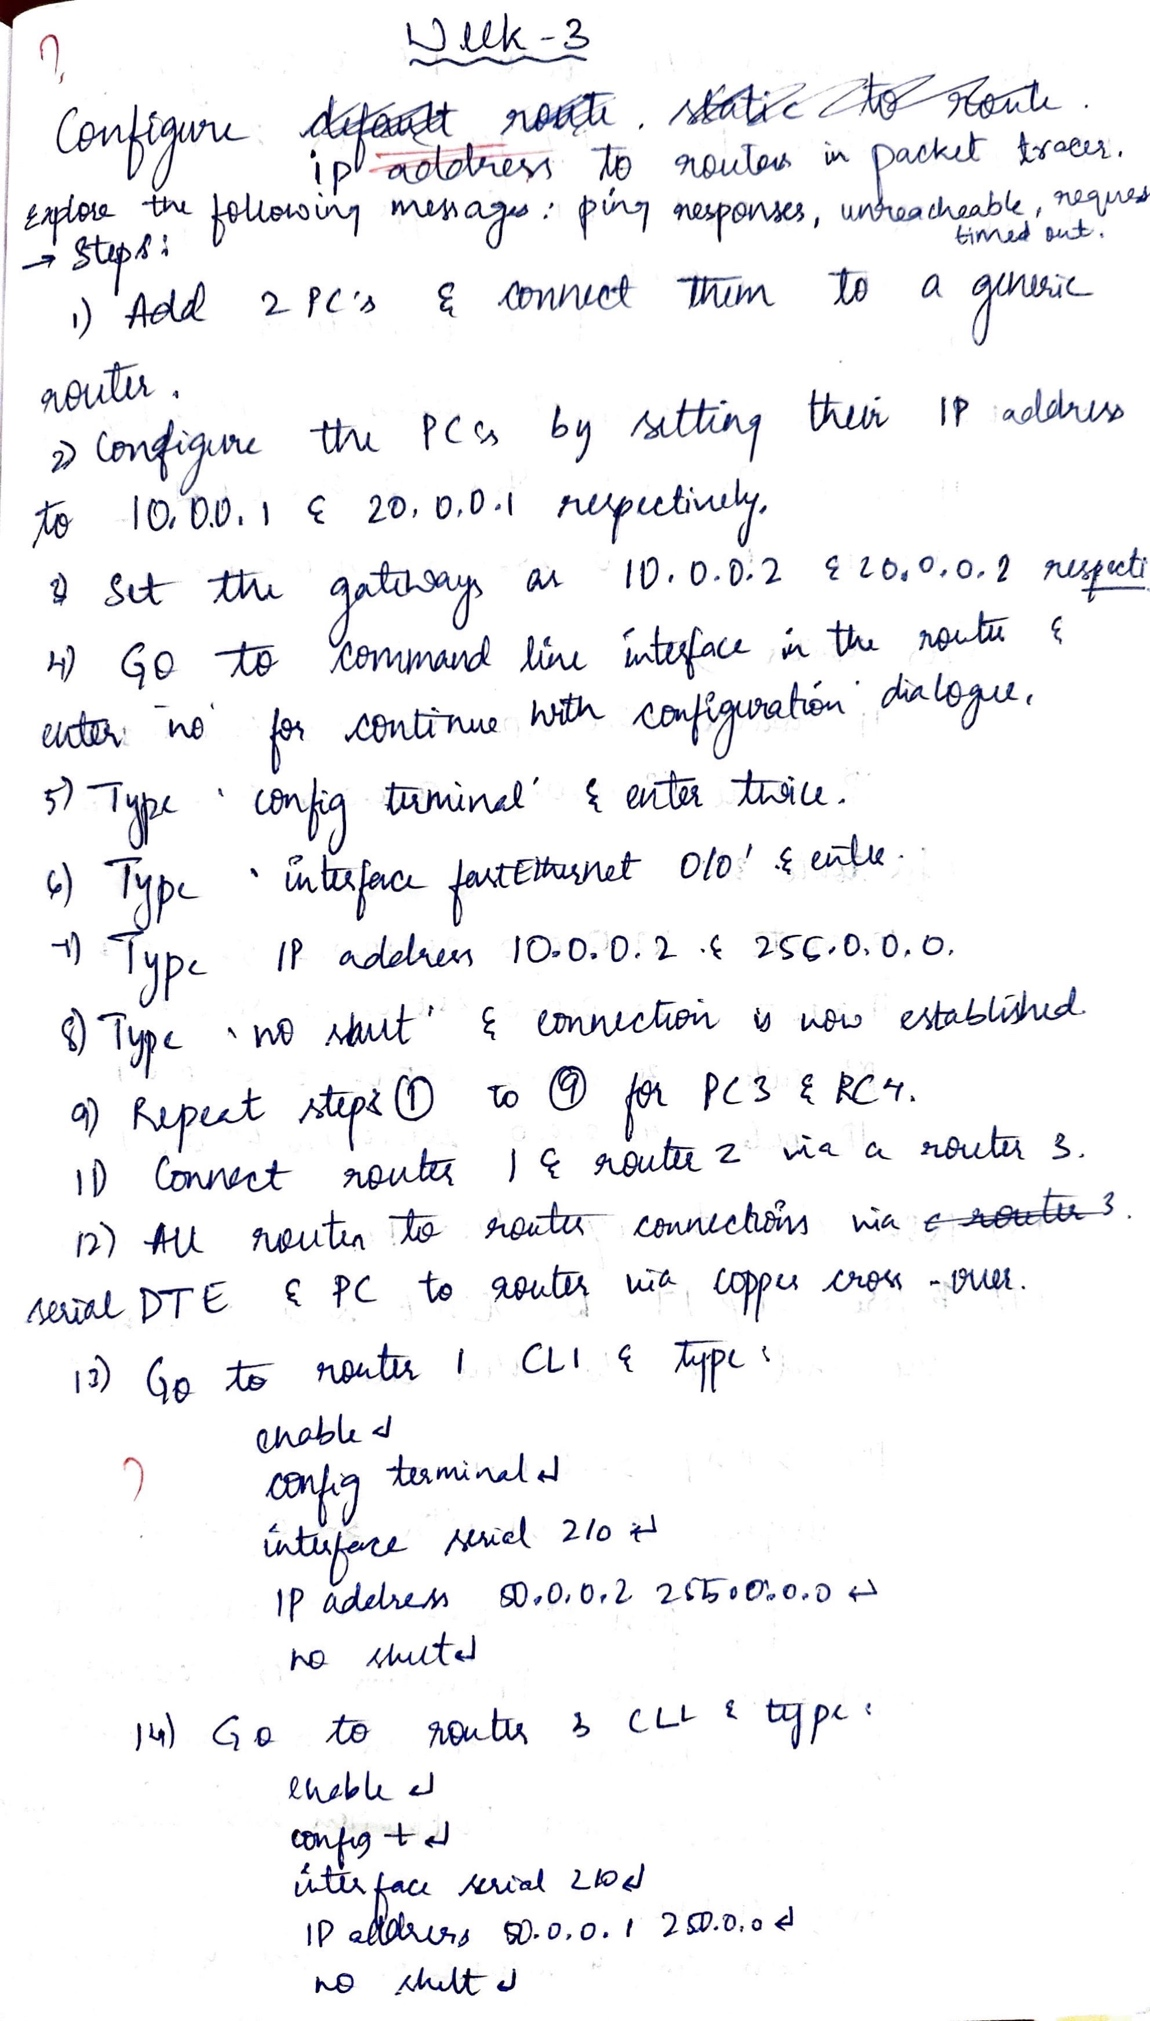 Week-3
?
Configure default route. static to route.
ip address to routers in packet tracer.
Explore the following messages: ping responses, unreacheable, request
timed out.
→ Steps:
1) Add 2 PC's & connect them to a generic
router.
2) Configure the PCs by setting their IP address
to 10.0.0.1 & 20.0.0.1 respectively.
3) Set the gateways as 10.0.0.2 & 20.0.0.2 respecti
4) Go to command line interface in the router &
enter 'no' for continue with configuration dialogue.
5) Type 'config terminal' & enter twice.
6) Type 'interface fastEthernet 0/0' & enter.
7) Type IP address 10.0.0.2 & 255.0.0.0.
8) Type 'no shut' & connection is now established.
9) Repeat steps ① to ⑨ for PC3 & PC4.
11) Connect router 1 & router 2 via a router 3.
12) All router to router connections via a router 3.
serial DTE & PC to router via copper cross-over.
13) Go to router 1 CLI & type:
enable ↵
?
config terminal ↵
interface serial 2/0 ↵
IP address 50.0.0.2 255.0.0.0 ↵
no shut ↵
14) Go to router 3 CLI & type:
enable ↵
config t ↵
interface serial 2/0 ↵
IP address 50.0.0.1 250.0.0 ↵
no shut ↵